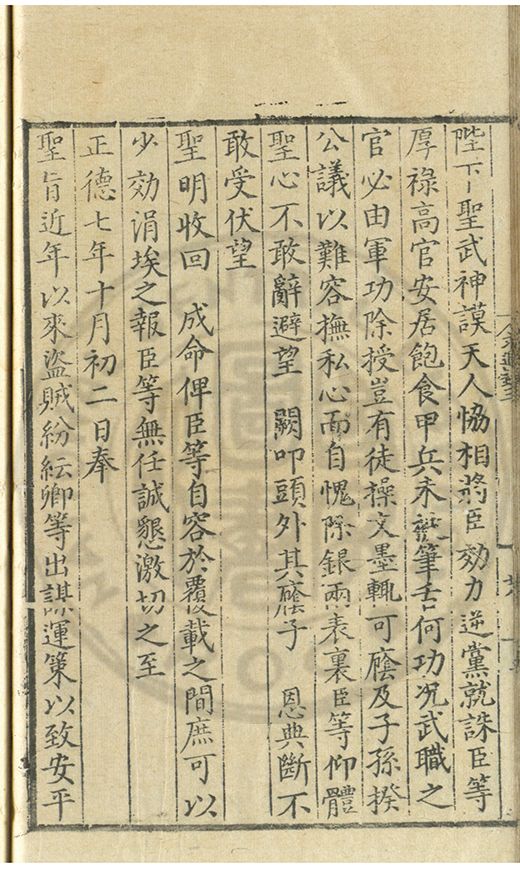 陛下聖武神謨天人恊相將臣効力逆黨就誅臣等
厚祿高官安居飽食甲兵未親筆舌何功况武職之
官必由軍功除授豈有徒操文墨輒可廕及子孫揆
公議以難容撫私心而自愧除銀兩表裏臣等仰體
聖心不敢辭避望 闕叩頭外其廕子 恩典斷不
敢受伏望
聖明收回 成命俾臣等自容於覆載之間庶可以
少効涓埃之報臣等無任誠懇激切之至
正德七年十月初二日奉
聖旨近年以來盜賊紛紜卿等出謀運策以致安平